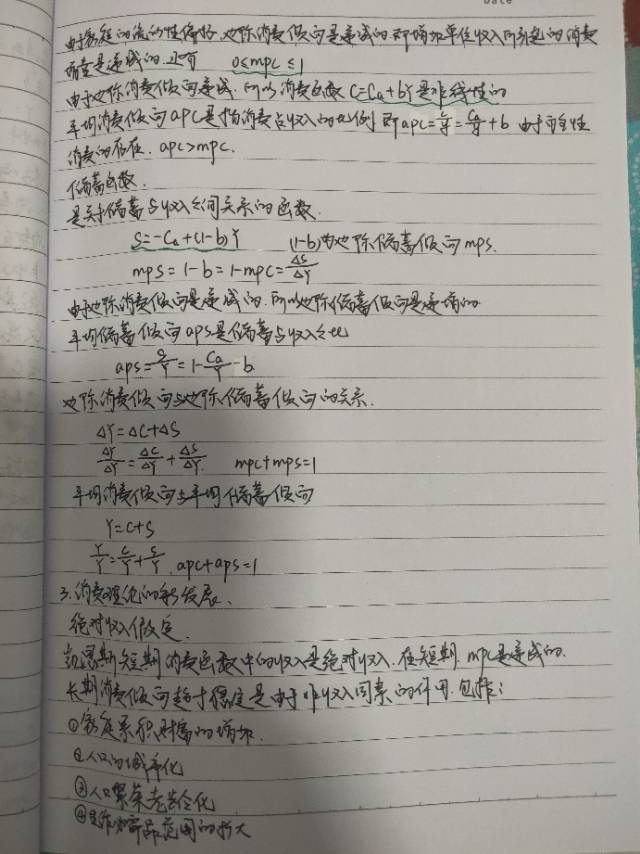 Date
由于家庭的流动性偏好,边际消费倾向是递减的,即增加单位收入所引起的消费
是递减的. 0≤mpc≤1
由于边际消费倾向递减,所以消费函数C=Ca+bY是非线性的
平均消费倾向APC是指消费占收入的比例 即apc=C/Y=Ca/Y+b 由于自主性
消费的存在,apc>mpc.
储蓄函数.
是关于储蓄与收入之间关系的函数.
S=-Ca+(1-b)Y (1-b)为边际储蓄倾向mps.
mps=1-b=1-mpc=ΔS/ΔY
由于边际消费倾向是递减的,所以边际储蓄倾向是递增的
平均储蓄倾向aps是储蓄占收入之比
aps=S/Y=1-Ca/Y-b
边际消费倾向与边际储蓄倾向的关系.
ΔY=ΔC+ΔS
ΔY/ΔY=ΔC/ΔY+ΔS/ΔY. mpc+mps=1
平均消费倾向与平均储蓄倾向
Y=C+S
Y/Y=C/Y+S/Y. apc+aps=1
3.消费理论的新发展.
绝对收入假定.
凯恩斯短期消费函数中的收入是绝对收入.在短期,mpc是递减的.
长期消费倾向趋于稳定是由于非收入因素的作用.包括:
①家庭累积财富的增加.
②人口的城市化
③人口老龄化
④ 品范围的扩大